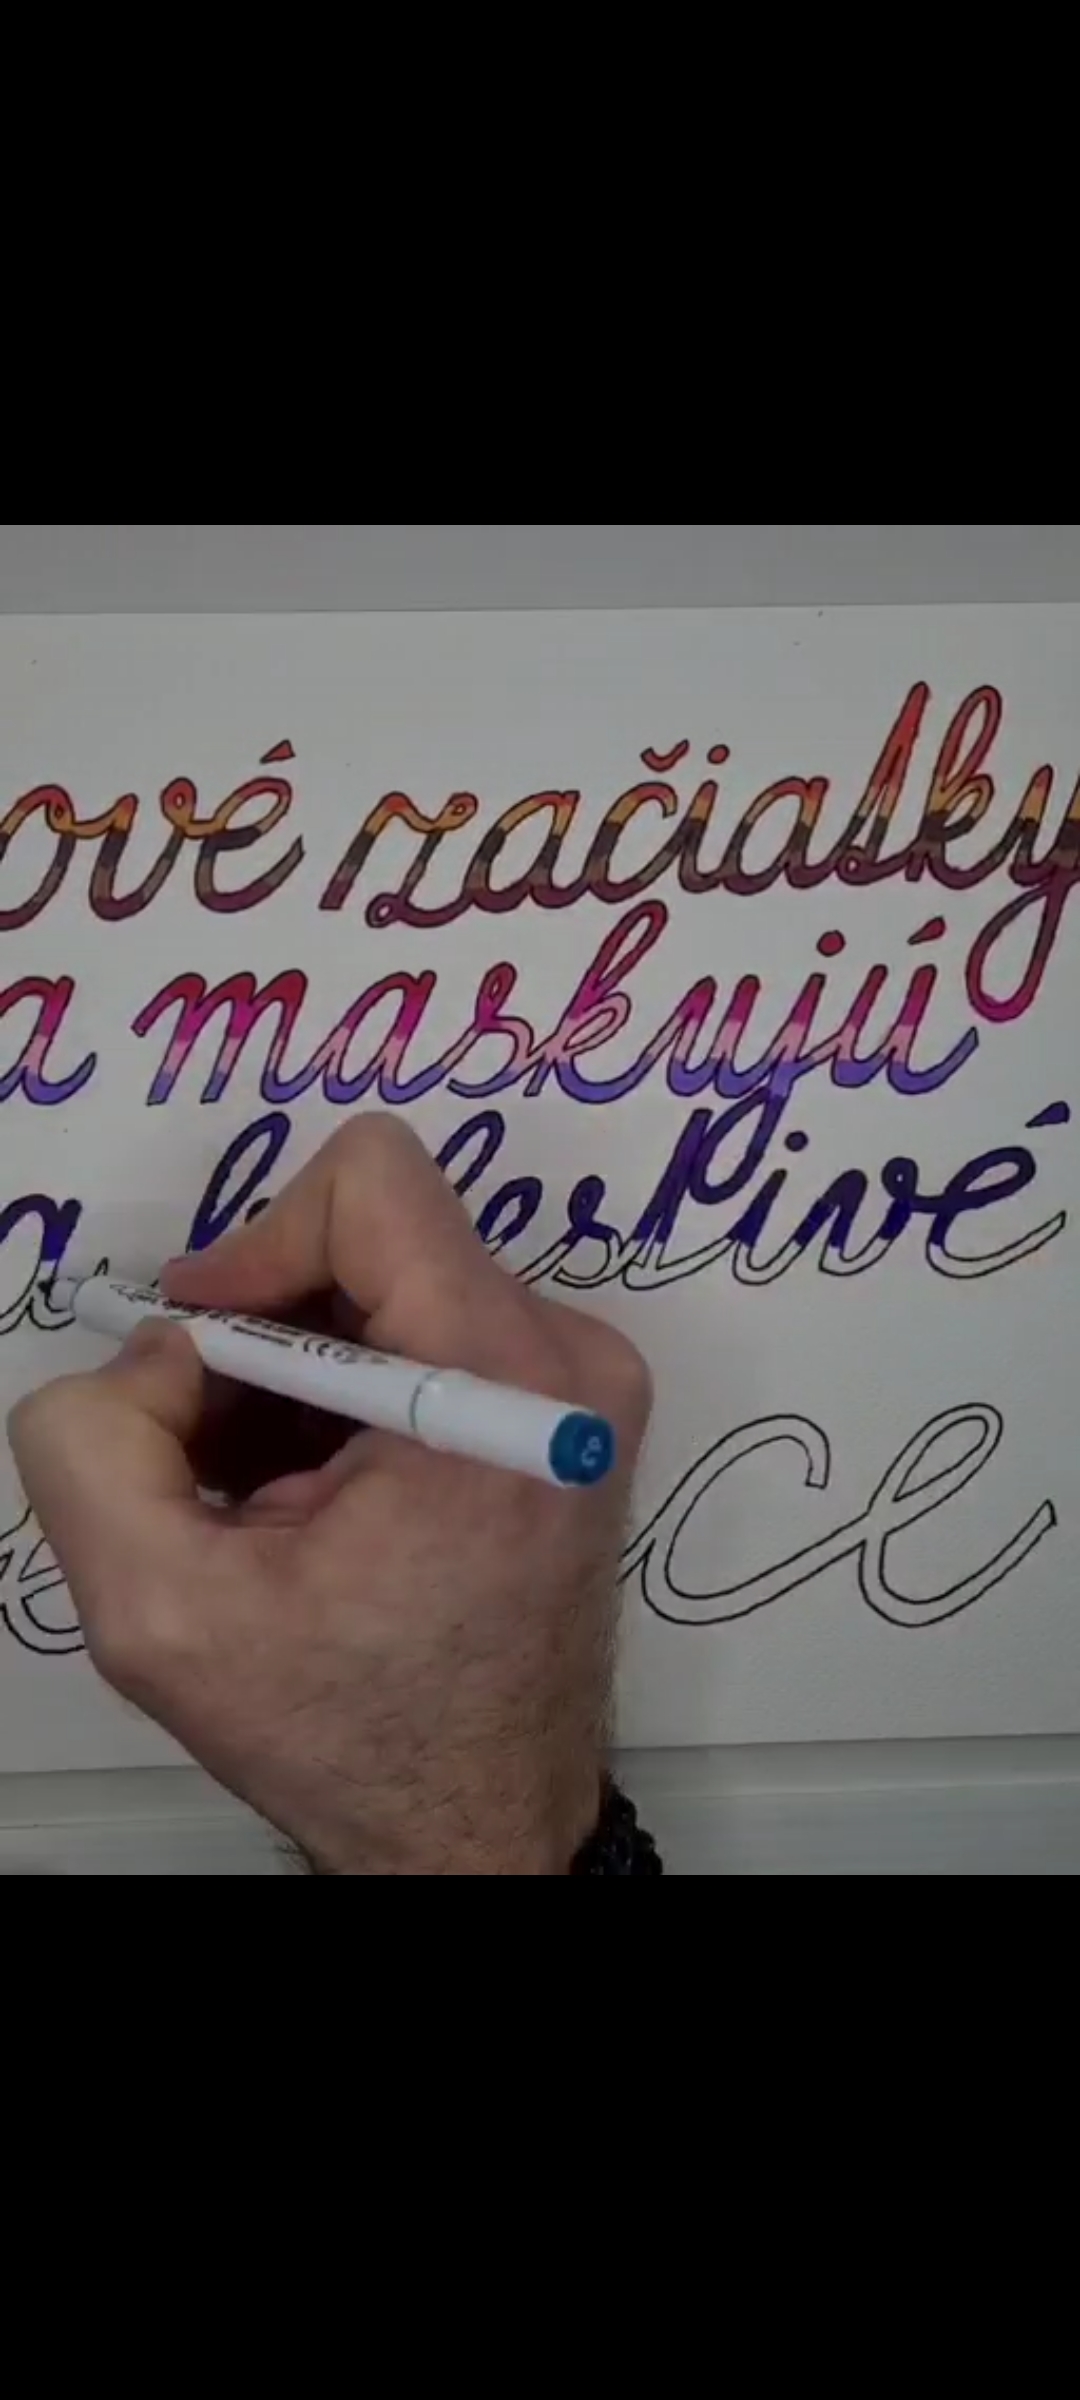 ové začiatky
a maskujú
a bolestivé
ce